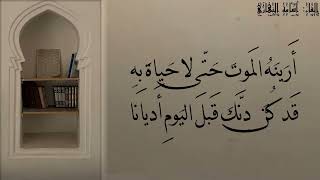 أَرَينَهُ المَوتَ حَتّى لا حَياةَ بِهِ
قَد كُنَّ دِنَّكَ قَبلَ اليَومِ أَديانا